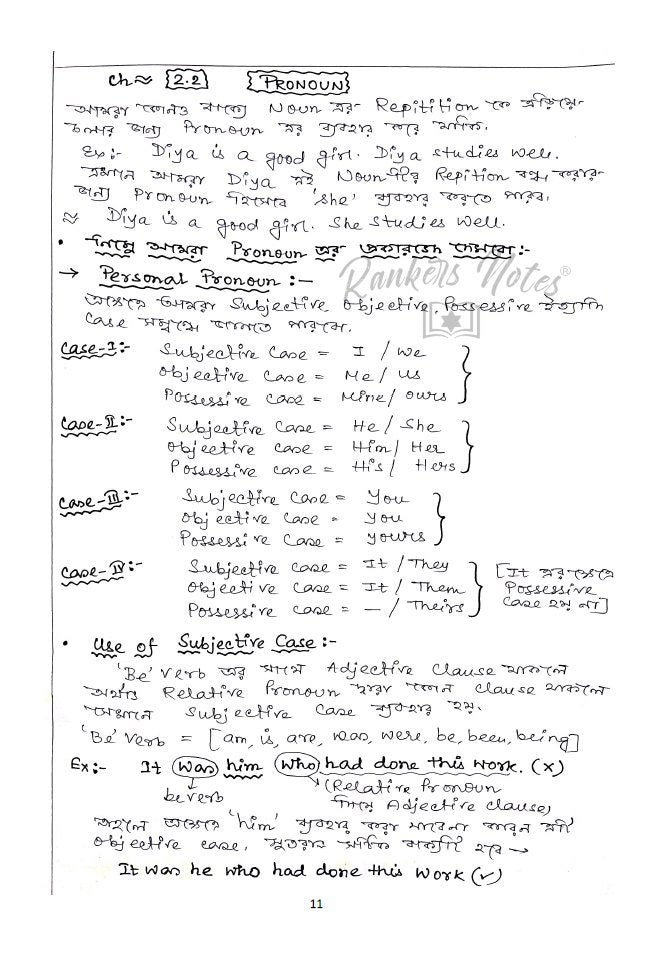 Ch ≈ [2.2] {PRONOUN}
আমরা কোনও বাক্যে Noun এর Repitition কে এড়িয়ে-
চলার জন্য Pronoun এর ব্যবহার করে থাকি.
Ex:- Diya is a good girl. Diya studies well.
এখানে আমরা Diya এই Noun টির Repition বন্ধ করার-
জন্য Pronoun হিসেবে 'she' ব্যবহার করতে পারব.
≈ Diya is a good girl. She studies well.
• নিম্নে আমরা Pronoun এর প্রকারভেদ দেখবো:-
→ Personal Pronoun:-
Rankers Notes®
এক্ষেত্রে আমরা Subjective, Objective, Possessive ইত্যাদি
Case সম্বন্ধে জানতে পারবো.
Case-I:- Subjective Case = I / We
Objective Case = Me / Us
Possessive Case = Mine / Ours
Case-II:- Subjective Case = He / She
Objective Case = Him / Her
Possessive Case = His / Hers
Case-III:- Subjective Case = You
Objective Case = You
Possessive Case = Yours
Case-IV:- Subjective Case = It / They [It এর ক্ষেত্রে
Objective Case = It / Them Possessive
Possessive Case = — / Theirs Case হয় না]
• Use of Subjective Case:-
'Be' verb এর সাথে Adjective Clause থাকলে
অর্থাৎ Relative Pronoun দ্বারা কোন clause থাকলে
সেখানে Subjective Case ব্যবহার হয়.
'Be' Verb = [am, is, are, was, were, be, been, being]
Ex:- It was him who had done this work. (x)
be verb (Relative Pronoun
দিয়ে Adjective clause)
তাহলে এক্ষেত্রে 'him' ব্যবহার করা যাবেনা কারন এটি
Objective case, সুতরাং সঠিক বাক্যটি হবে →
It was he who had done this work (✓)
11